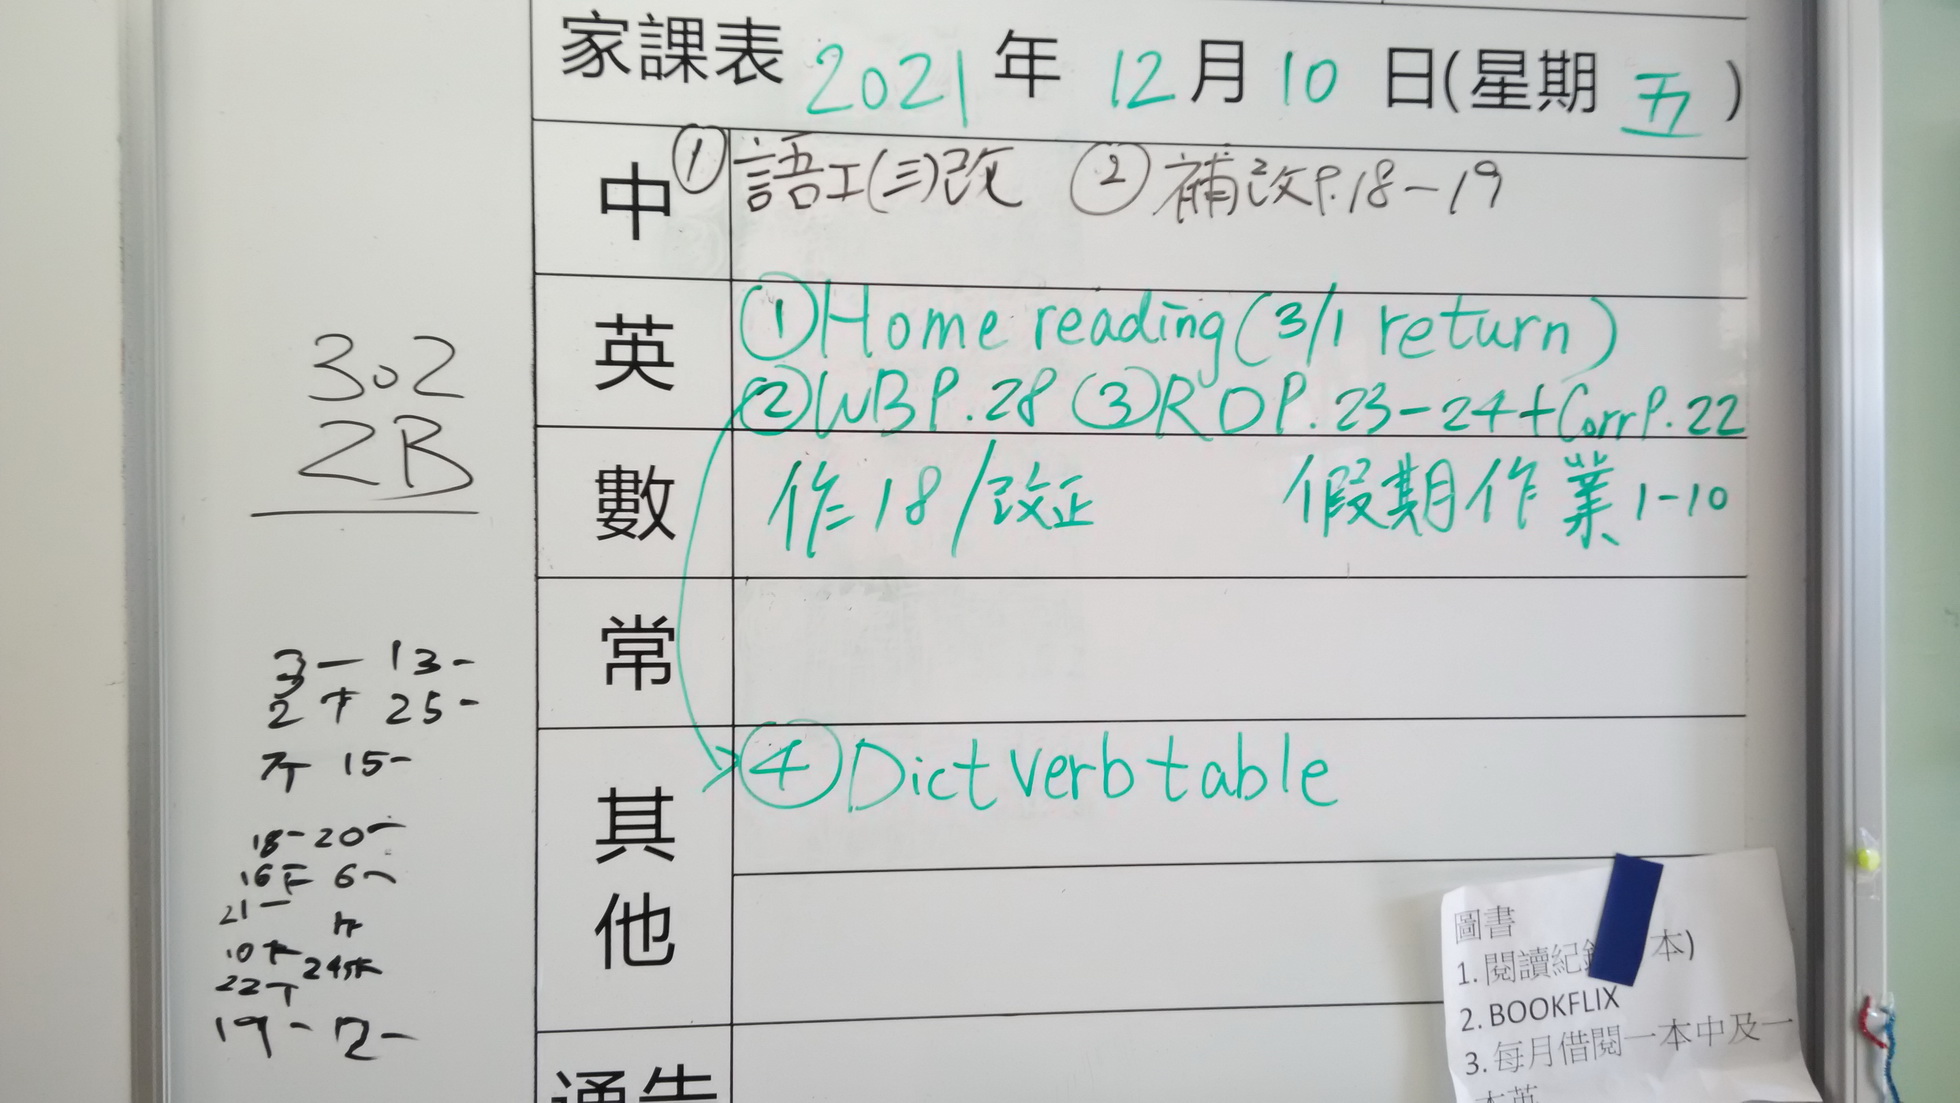 家課表 2021 年 12 月 10 日(星期 五 )
中 ① 語工(三)改 ② 補改P.18-19
英 ① Home reading (3/1 return)
② WB P.28 ③ RO P.23-24 + Corr P.22
數 作18/改正 假期作業1-10
常
其他 ④ Dict verb table
通告
302
2B
3一 13-
2 下 25-
15-
18- 20-
16 正 6
21一
10
22 下
19 -
圖書
1. 閱讀紀 本)
2. BOOKFLIX
3. 每月借閱一本中及一
本英